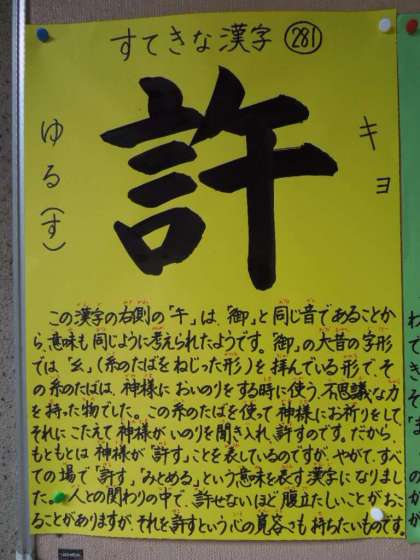 すてきな漢字 281
許
キョ
ゆる(す)
この漢字の右側の「午」は、「御」と同じ音であることか
ら、意味も同じように考えられたようです。「御」の大昔の字形
では「幺」(糸のたばをねじった形)を拝んでいる形で、そ
の糸のたばは、神様においのりをする時に使う、不思議な力
を持った物でした。この糸のたばを使って神様にお祈りをして、
それにこたえて神様がいのりを聞き入れ、許すのです。だから、
もともとは神様が「許す」ことを表しているのですが、やがて、すべ
ての場で「許す」「みとめる」という意味を表す漢字になりまし
た。人との関わりの中で、許せないほど腹立たしいことがおこ
ることがありますが、それを許すという心の寛容さも持ちたいものです。